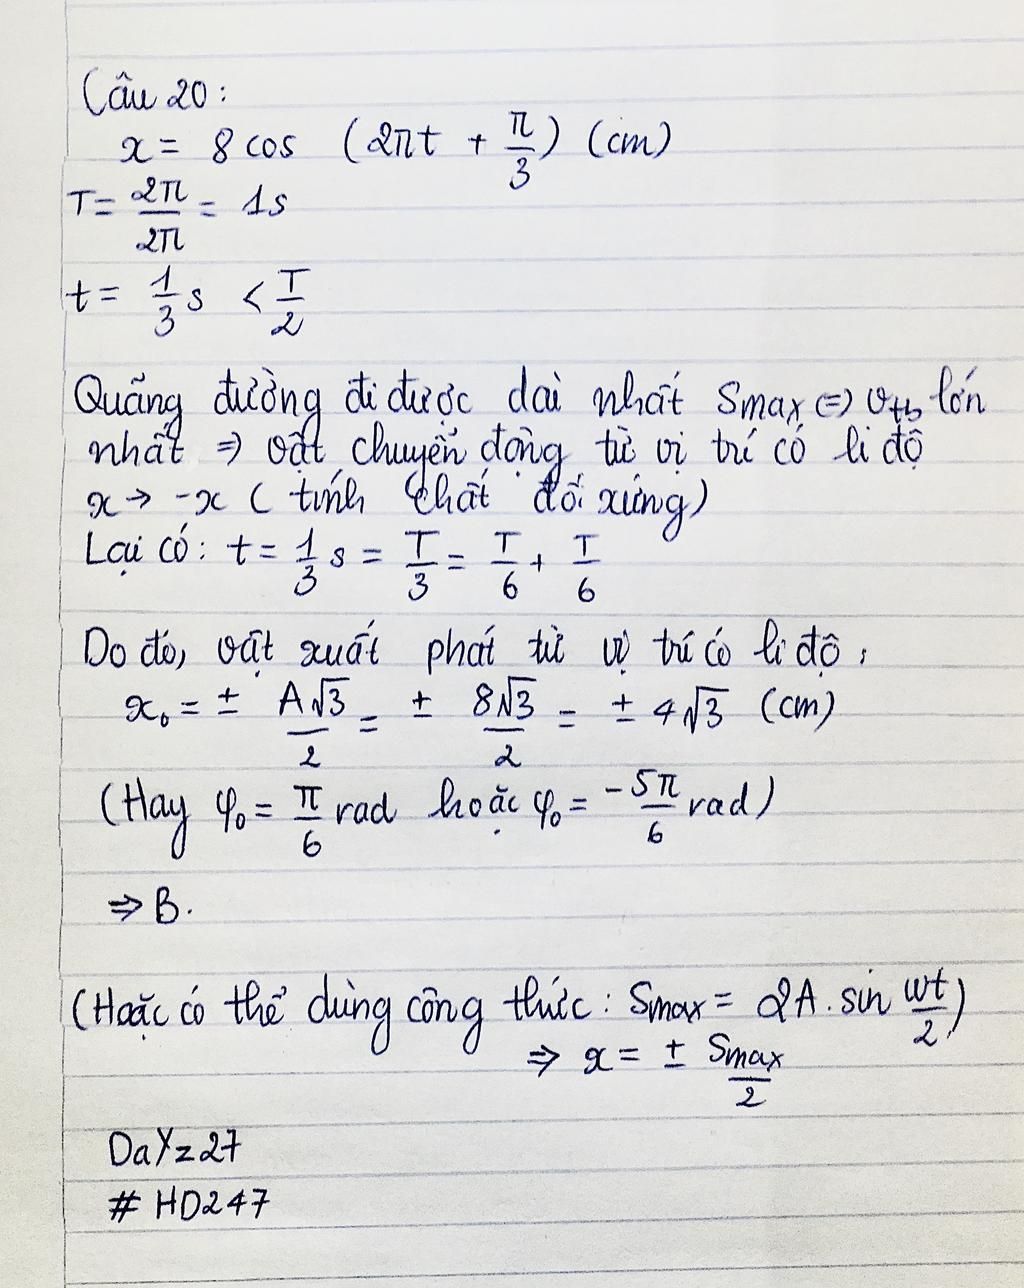 Câu 20:
x = 8 cos (2πt + π/3) (cm)
T = 2π/2π = 1s
t = 1/3 s < T/2
Quãng đường đi được dài nhất Smax ⇔ vtb lớn
nhất ⇒ vật chuyển động từ vị trí có li độ
x → -x (tính chất đối xứng)
Lại có: t = 1/3 s = T/3 = T/6 + T/6
Do đó, vật xuất phát từ vị trí có li độ:
x₀ = ± A√3/2 = ± 8√3/2 = ± 4√3 (cm)
(Hay φ₀ = π/6 rad hoặc φ₀ = -5π/6 rad)
⇒ B.
(Hoặc có thể dùng công thức: Smax = 2A. sin ωt/2)
⇒ x = ± Smax/2
DaYz27
# HD247